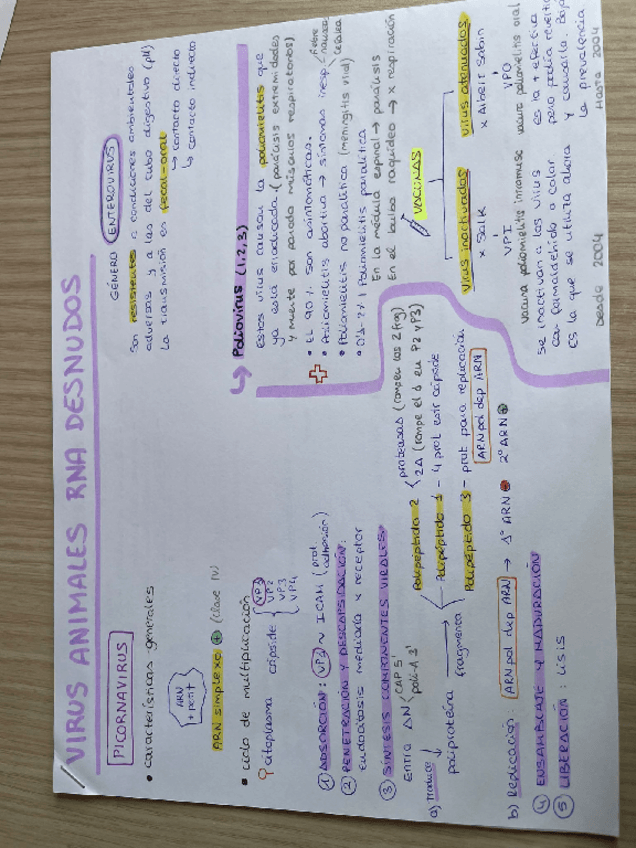 VIRUS ANIMALES RNA DESNUDOS
PICORNAVIRUS
• características generales
ARN
+ petit
ARN simplexo ⊕ (clase IV)
• ciclo de multiplicación
citoplasma cápside { VP1
VP2
VP3
VP4
① ADSORCIÓN: VP1 ~ ICAM (prot. adhesión)
② PENETRACIÓN Y DESCAPSIDACIÓN:
Endocitosis mediada x receptor
③ SÍNTESIS COMPONENTES VIRALES:
Entra AN { CAP 5'
poli-A 3'
a) Traduce ↓
poliproteína → fragmenta
Polipéptido 2 { proteasas (rompen los 2 frag)
2A (rompe el 1 en P2 y P3)
Polipéptido 1 - 4 prot estr cápside
Polipéptido 3 - prot para replicación
ARN pol dep ARN
b) Replicación: ARN pol dep ARN → 1º ARN ⊖ 2º ARN ⊕
④ ENSAMBLAJE Y MADURACIÓN
⑤ LIBERACIÓN: LISIS
GÉNERO ENTEROVIRUS
Son resistentes a condiciones ambientales
adversas y a las del tubo digestivo (pH)
La transmisión es fecal-oral
↳ contacto directo
↳ contacto indirecto
↳ Poliovirus (1,2,3)
Estos virus causan la poliomielitis que
ya está erradicada (parálisis extremidades
y muerte por parada músculos respiratorios)
• El 90% son asintomáticas.
• Poliomielitis abortiva → síntomas inesp. { fiebre
náuseas
cefalea
• Poliomielitis no paralítica (meningitis viral)
• 0'1-2% Poliomielitis paralítica
En la médula espinal → parálisis
En el bulbo raquídeo → x respiración
VACUNAS
Virus inactivados
x Salk
VPI
vacuna poliomielitis intramusc
Se inactivan a los virus
con formaldehído o calor
Es la que se utiliza ahora
Desde 2004
Virus atenuados
x Albert Sabin
VPO
vacuna poliomielitis oral
es la + efectiva
pero podía
y causarla. Baja
la prevalencia
Hasta 2004